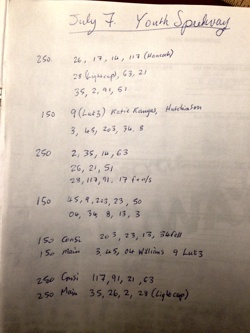 July 7. Youth Speedway
250 26, 17, 14, 117 (Hancock)
28 (Lightscap), 63, 21
35, 2, 91, 51
150 9 (Lutz) Katie Kanger, Hutchinson
3, 45, 203, 34, 8
250 2, 35, 14, 63
26, 21, 51
28, 117, 91, 17 f
150 45, 9, 203, 23, 50
04, 34, 8, 13, 3
150 Consi 203, 23, 13, 34 fell
150 Main 3, 45, 04 Williams 9 Lutz
250 Consi 117, 91, 21, 63
250 Main 35, 26, 2, 28 (Lightscap)